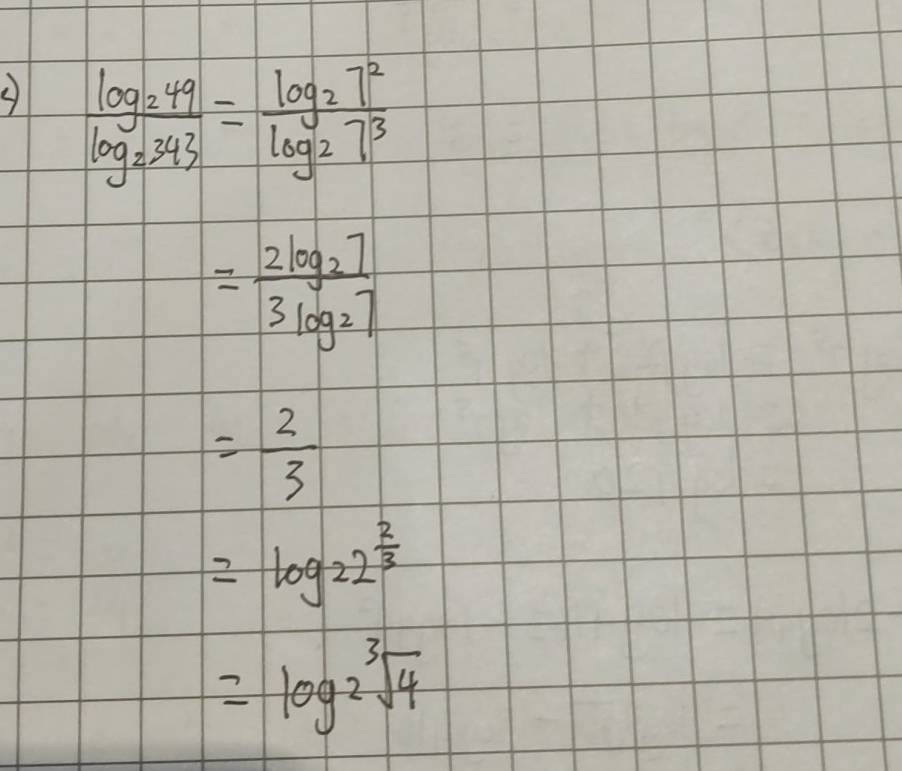 c) log₂49/log₂343 = log₂7²/log₂7³
= 2log₂7/3log₂7
= 2/3
= log₂2^(2/3)
= log₂∛4